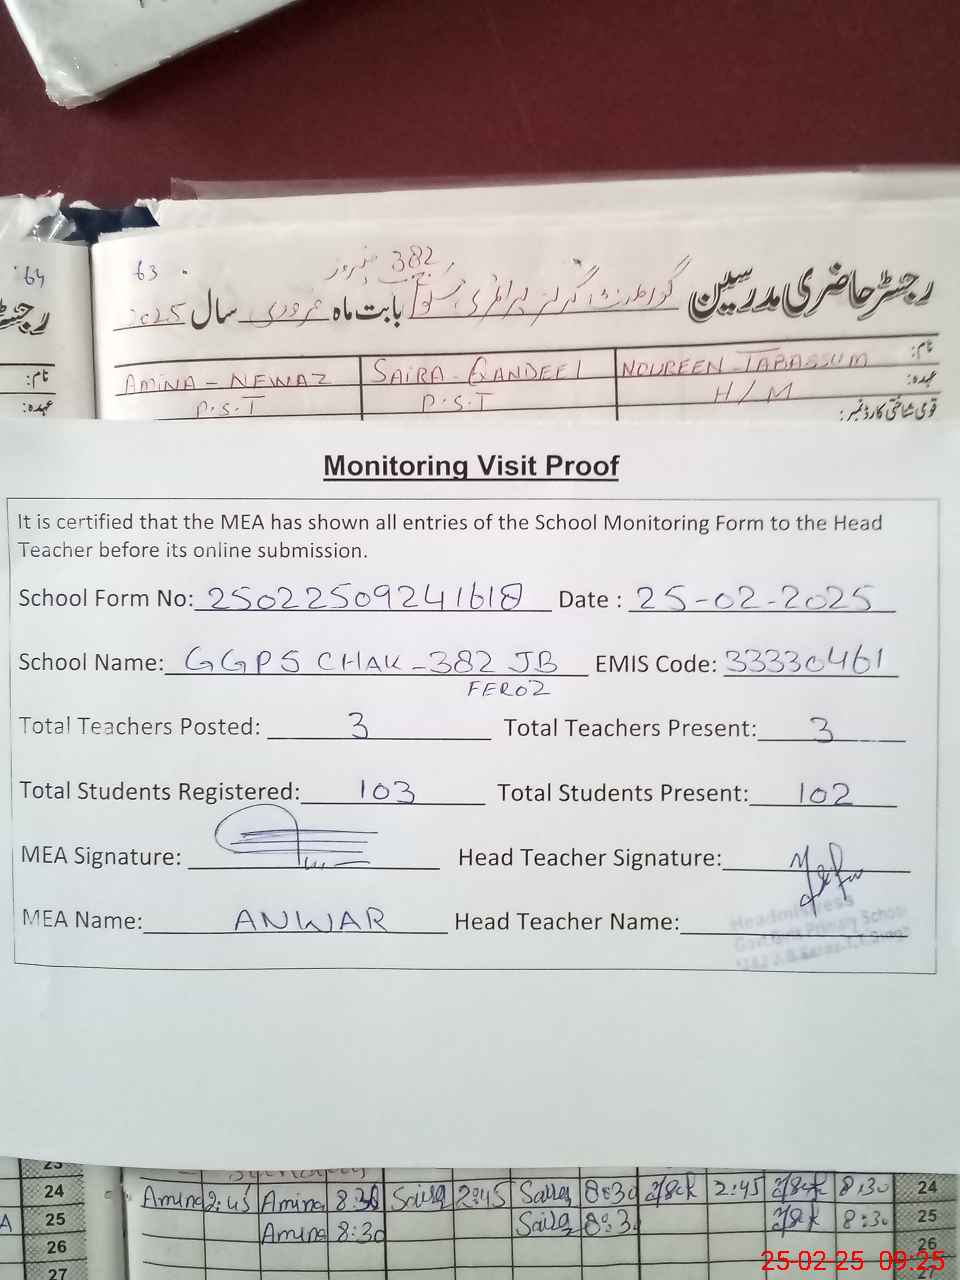 63
64
382 فیروز
رجسٹر حاضری مدرسین گورنمنٹ گرلز پرائمری سکول بابت ماہ فروری سال 2025
نام: NOUREEN TABASSUM SAIRA - QANDEEL AMINA - NEWAZ
عہدہ: H/M P.S.T P.S.T
قومی شناختی کارڈ نمبر:
رجسٹر
نام:
عہدہ:
Monitoring Visit Proof
It is certified that the MEA has shown all entries of the School Monitoring Form to the Head
Teacher before its online submission.
School Form No: 25022509241618 Date : 25-02-2025
School Name: GGPS CHAK-382 JB EMIS Code: 33330461
FEROZ
Total Teachers Posted: 3 Total Teachers Present: 3
Total Students Registered: 103 Total Students Present: 102
MEA Signature: Head Teacher Signature:
MEA Name: ANWAR Head Teacher Name:
Headmistress
Govt Girls Primary School
23
24 Amina 2:45 Amina 8:30 Saira 2:45 Saira 8:30 2:45 8:30 24
A 25 Amina 8:30 Saira 8:30 8:30 25
26 26
27 27
25-02-25 09:25